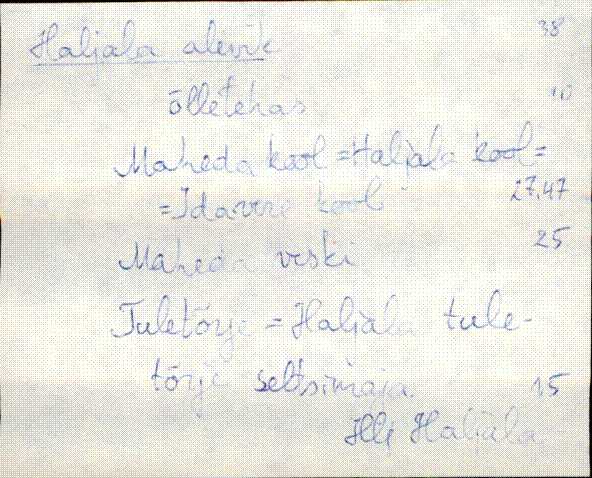 Haljala alevik 38
õlletehas 10
Maheda kool = Haljala kool =
= Idavere kool 27,47
Maheda veski 25
Tuletõrje = Haljala tule-
tõrje seltsimaja. 15
Haljala